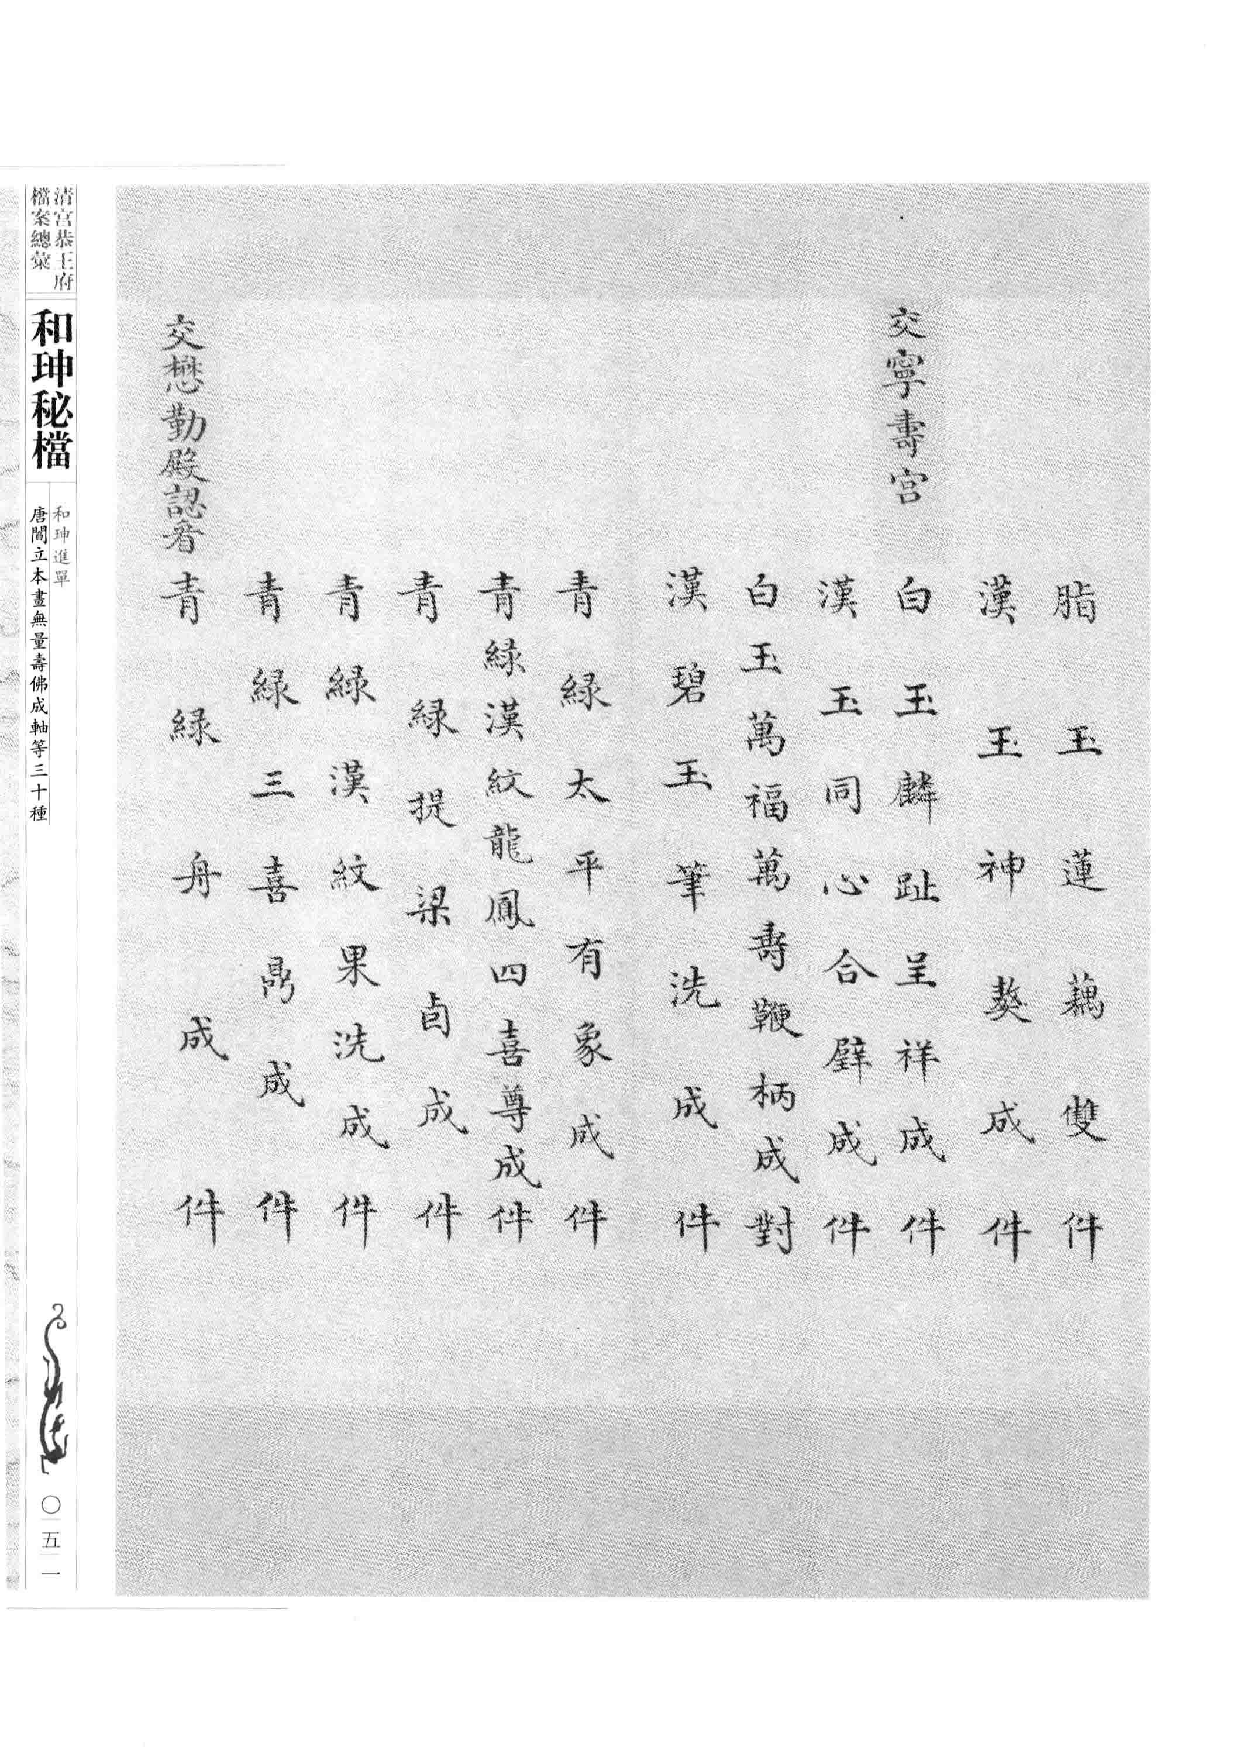 脂玉蓮藕雙件
漢玉神獒成件
交寧壽宮
白玉麟趾呈祥成件
漢玉同心合璧成件
白玉萬福萬壽鞭柄成對
漢碧玉筆洗成件
青緑太平有象成件
青緑漢紋龍鳳四喜尊成件
青緑提梁卣成件
青緑漢紋果洗成件
青緑三喜鼎成件
交懋勤殿認看
青緑舟成件
清宮恭王府
檔案總彙
和珅秘檔
和珅進單
唐閻立本畫無量壽佛成軸等三十種
〇五一